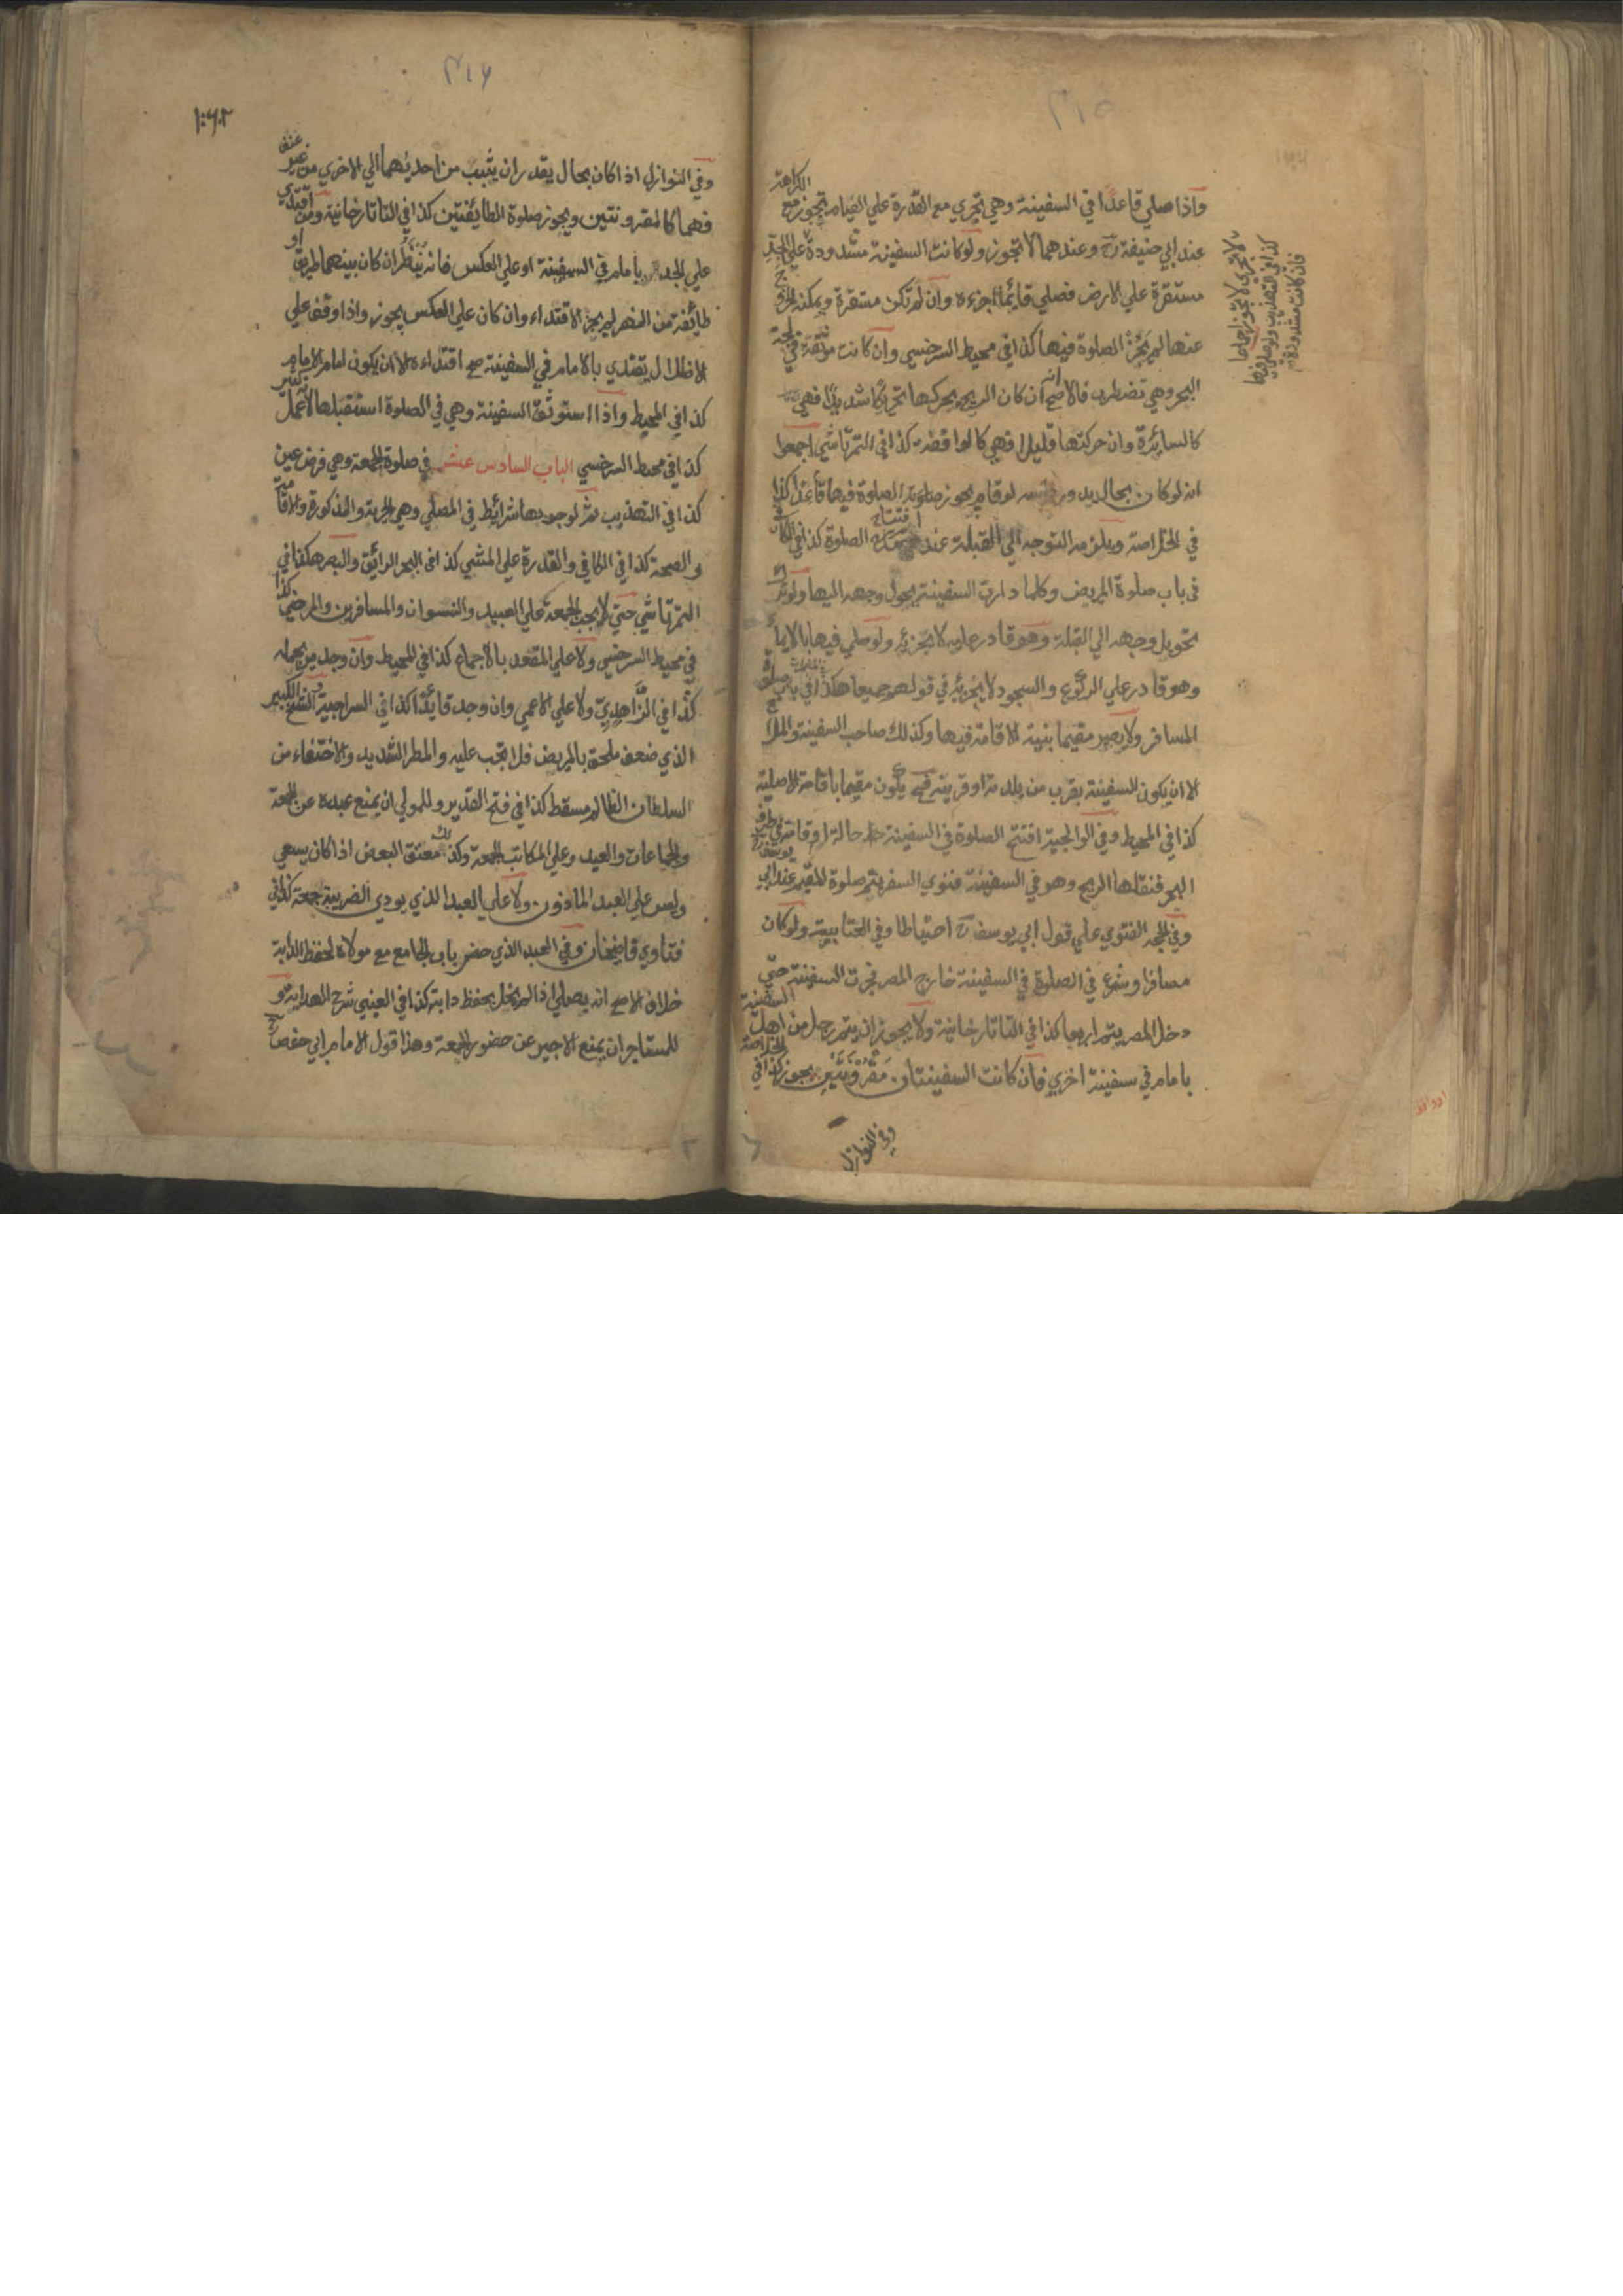 ٣١٥
واذا صلي قاعدا في السفينة وهي تجري مع القدرة علي القيام تجوز مع الكراهة
عند ابي حنيفة رح وعندهما لا تجوز ولو كانت السفينة مشدودة علي الجد
لا تجري لا تجوز اجماعا
كذا في التهذيب ولو صلي فيها
فان كانت مشدودة
مستقرة علي الارض فصلي قائما اجزءه وان لم تكن مستقرة ويمكنه الخروج
عنها لم يجز الصلوة فيها كذا في محيط السرخسي وان كانت موثقة في لجة
البحر وهي تضطرب فالاصح انه ان كان الريح يحركها تحريكا شديدا فهي
كالسائرة وان حركتها قليلا فهي كالواقفة كذا في التمرتاشي اجمعوا
انه لو كان بحال يدور راسه لو قام يجوز الصلوة فيها قاعدا كذا
في الخلاصة ويلزمه التوجه الي القبلة عند افتتاح الصلوة كذا في الكافي
في باب صلوة المريض وكلما دارت السفينة يحول وجهه اليها ولو ترك
تحويل وجهه الي القبلة وهو قادر عليه لا يجزئه ولو صلي فيها بالايماء
وهو قادر علي الركوع والسجود لا يجزئه في قولهم جميعا هكذا في باب صلوة
المسافر ولا يصير مقيما بنية الاقامة فيها وكذلك صاحب السفينة والملاح
الا ان يكون السفينة بقرب من بلدته او قريته فح يكون مقيما باقامة الاصلية
كذا في المحيط وفي الوالجية افتتح الصلوة في السفينة حالة اقامته في طرف
البحر فنقلها الريح وهو في السفينة فنوي السفر يتم صلوة المقيم عند ابي يوسف رح
وفي الحجه الفتوي علي قول ابي يوسف رح احتياطا وفي العتابية ولو كان
مسافرا وشرع في الصلوة في السفينة خارج المصر فجرت السفينة حتي
دخل المصر يتم اربعا كذا في التاتارخانية ولا يجوز ان يتم رجل من اهل السفينة
بامام في سفينة اخري فان كانت السفينتان مقرونتين يجوز كذا في الخلاصة
وفي النوازل
٣١٦
وفي النوازل اذا كان بحال يقدر ان يثب من احديهما الي الاخري من غير عنف
فهما كالمقرونتين ويجوز صلوة الطائفتين كذا في التاتارخانية ومن اقتدي
علي الجد بامام في السفينة او علي العكس فانه ينظر ان كان بينهما طريق او
طائفة من النهر لم يجز الاقتداء وان كان علي العكس يجوز واذا وقف علي
الاظلال يقتدي بالامام في السفينة صح اقتداءه الا ان يكون امام الامام
كذا في المحيط واذا استوثق السفينة وهي في الصلوة استقبلها لا عمل كثير
كذا في محيط السرخسي الباب السادس عشر في صلوة الجمعة وهي فرض عين
كذا في التهذيب ثم لوجوبها شرائط في المصلي وهي الحرية والذكورة والاقامة
والصحة كذا في الكافي والقدرة علي المشي كذا في البحر الرائق والبصر هكذا في
التمرتاشي حتي لا يجب الجمعة علي العبيد والنسوان والمسافرين والمرضي كذا
في محيط السرخسي ولا علي المقعد بالاجماع كذا في المحيط وان وجد من يحمله
كذا في الزاهدي ولا علي الاعمي وان وجد قائدا كذا في السراجية والشيخ الكبير
الذي ضعف ملحق بالمريض فلا تجب عليه والمطر الشديد والاختفاء من
السلطان الظالم مسقط كذا في فتح القدير وللمولي ان يمنع عبده عن الجمعة
والجماعات والعيد وعلي المكاتب الجمعة وكذلك معتق البعض اذا كان يسعي
وليس علي العبد الماذون ولا علي العبد الذي يودي الضريبة جمعة كذا في
فتاوي قاضيخان وفي العبد الذي حضر باب الجامع مع مولاه لحفظ الدابة
خلاف الاصح انه يصلي اذا لم يخل بحفظ دابته كذا في العيني شرح الهداية و
للمستاجر ان يمنع الاجير عن حضور الجمعة وهذا قول الامام ابي حفص رح